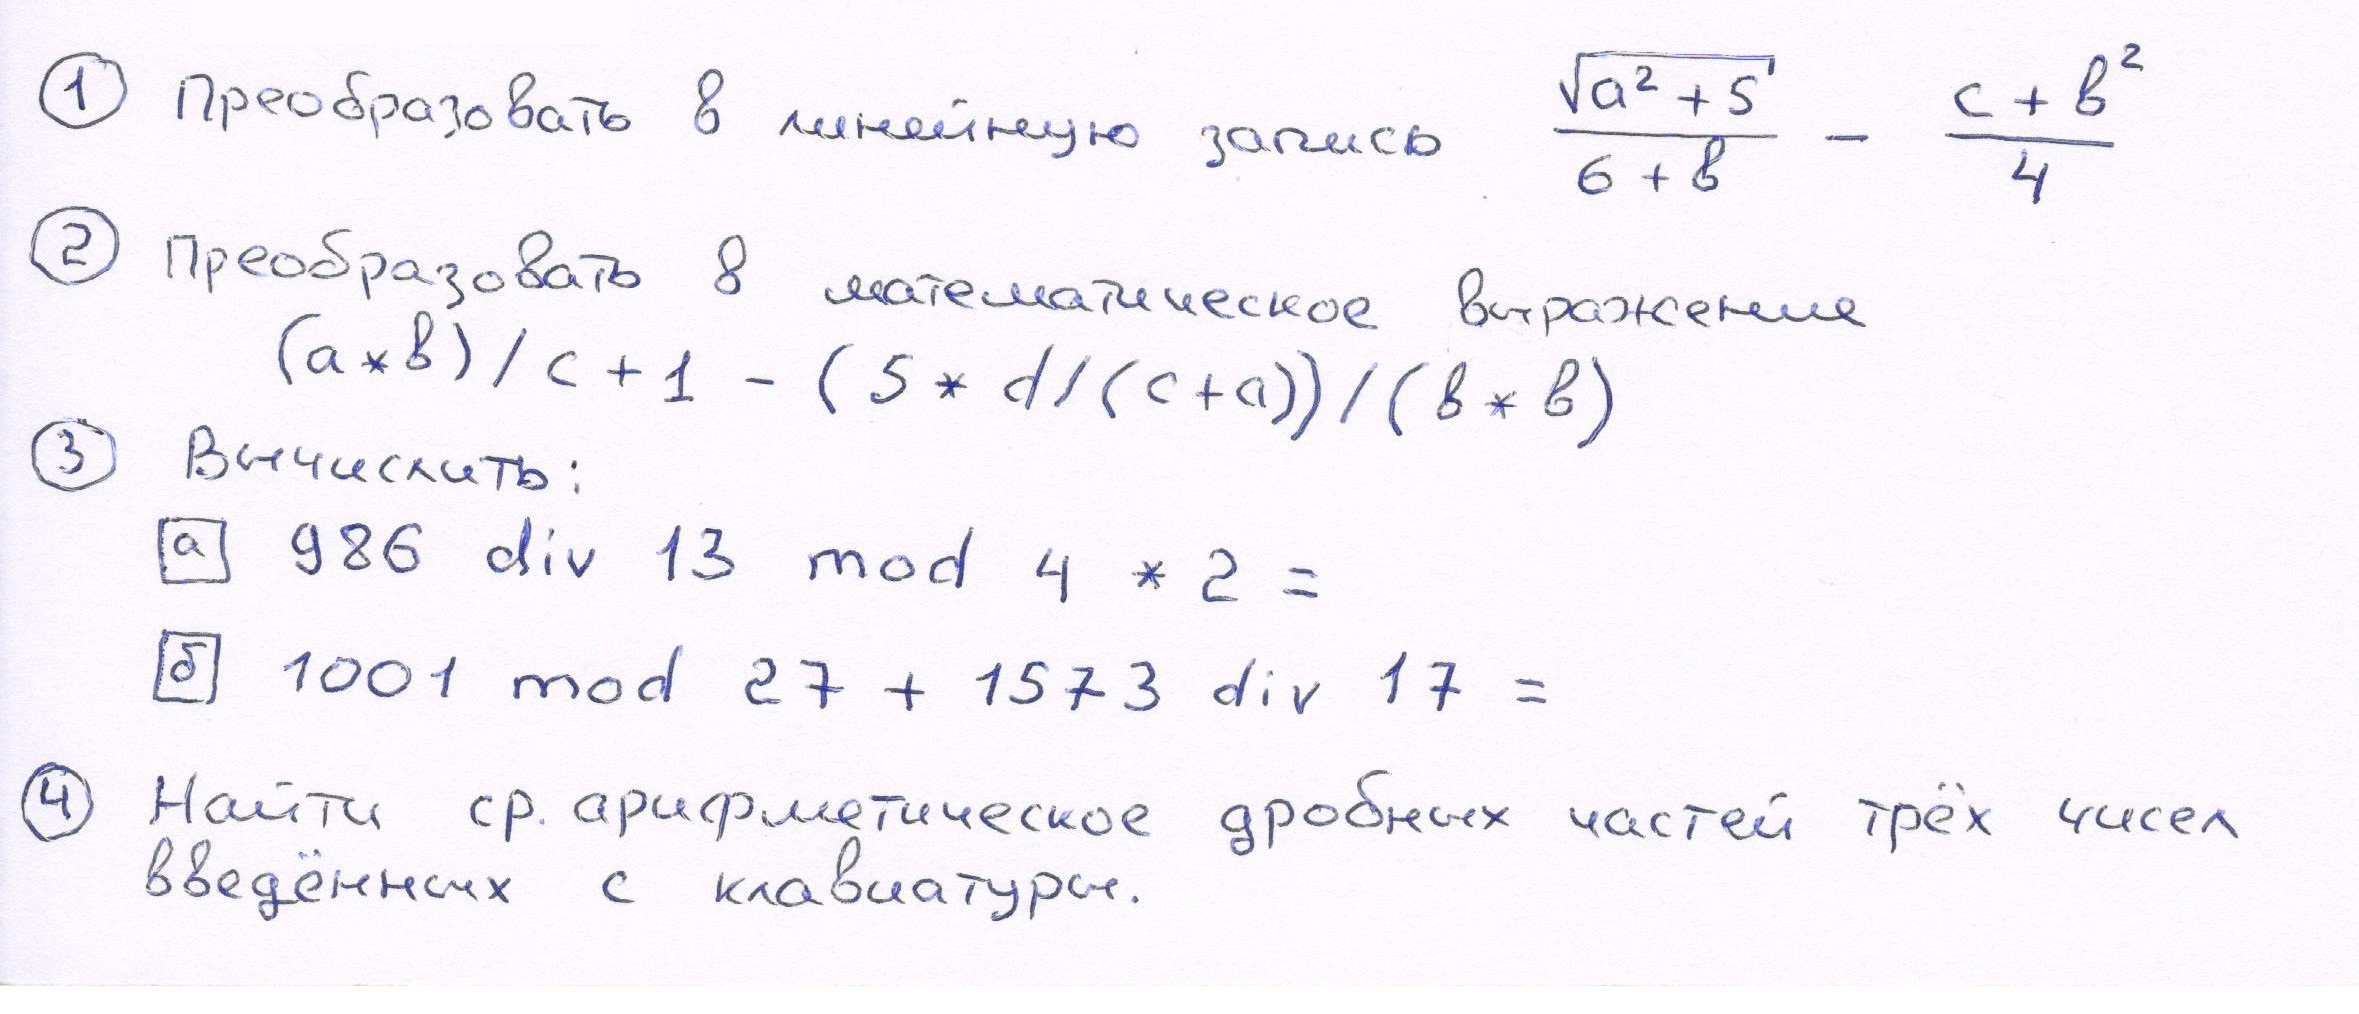 ① Преобразовать в линейную запись √(a² + 5) / (6 + b) - (c + b²) / 4
② Преобразовать в математическое выражение
(a * b) / c + 1 - (5 * d / (c + a)) / (b * b)
③ Вычислить:
а 986 div 13 mod 4 * 2 =
б 1001 mod 27 + 1573 div 17 =
④ Найти ср. арифметическое дробных частей трёх чисел
введённых с клавиатуры.